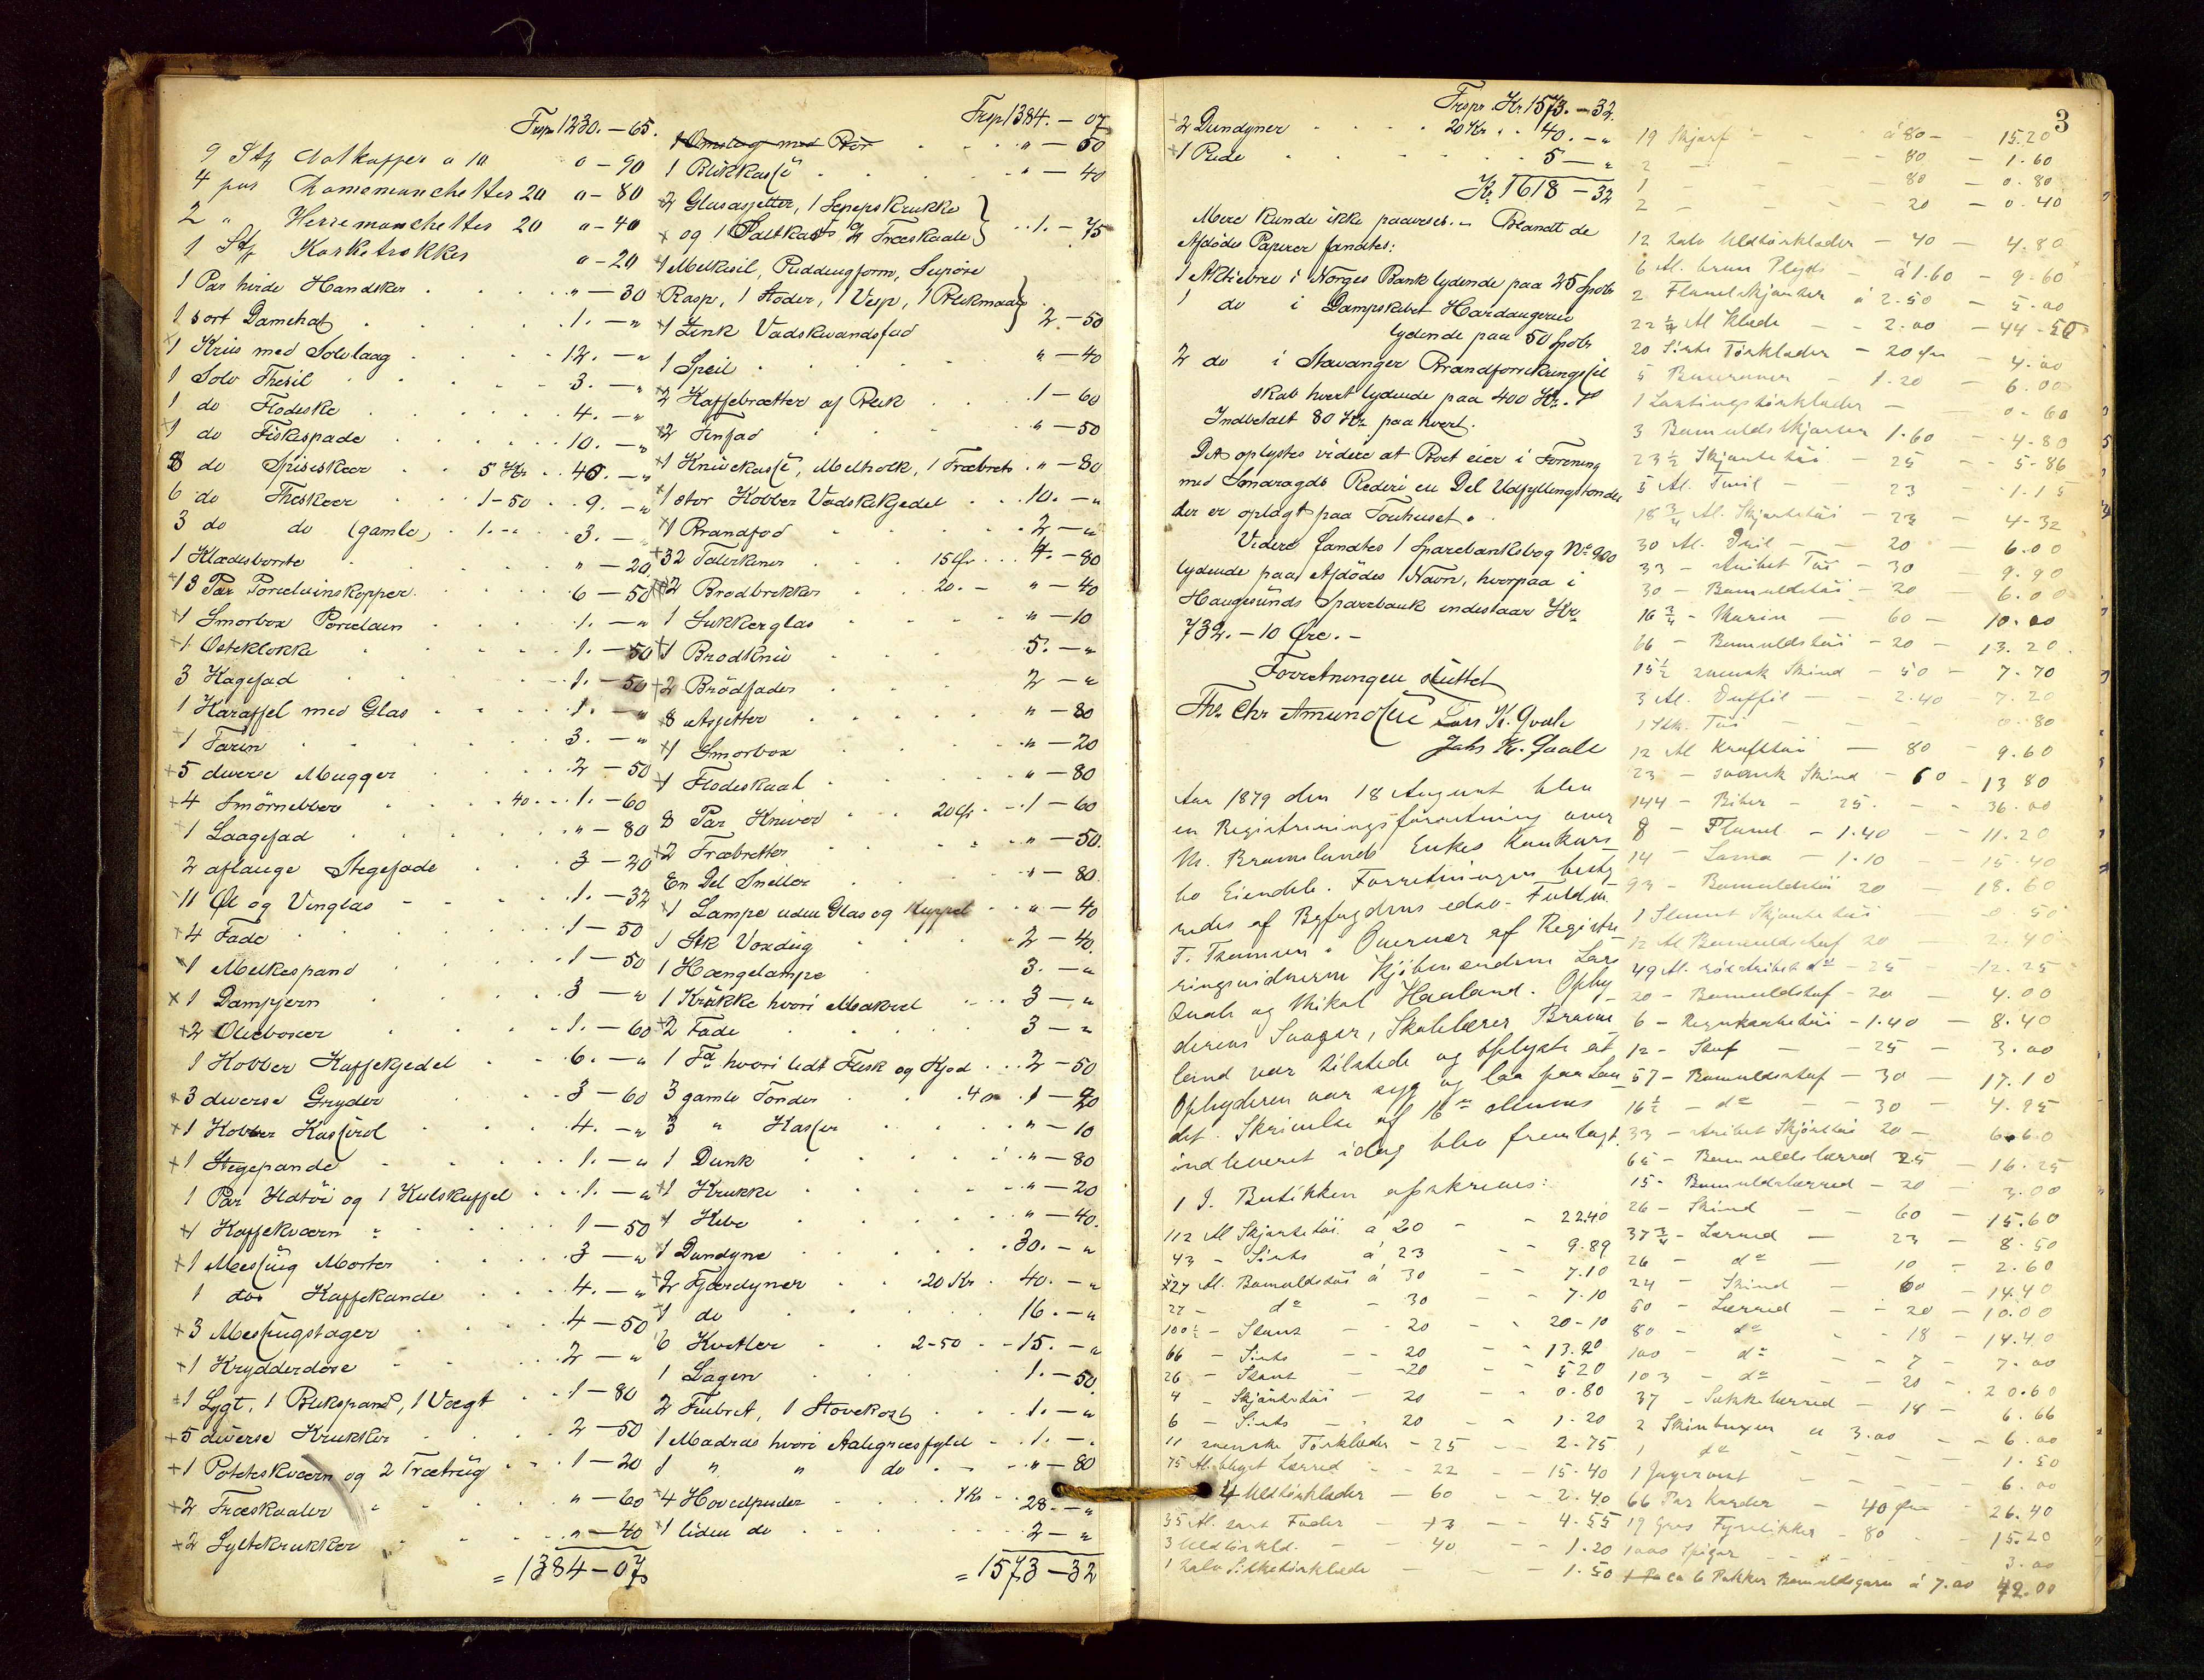 Trsp. 1230.-65.
9 Stk Natkapper a 10 0-90
4 par Damemanchetter 20 0-80
2 " Herremanchetter 20 0-40
1 Stk 0-20
1 Par hvide Handsker "-30
1 sort Damehat 1.-"
1 Krus med Solvlaag 12.-"
1 Solv Thesil 3.-"
1 do Flodeske 4.-"
1 do Fiskespade 10.-"
8 do Spiseskeer 5 Kr 40.-"
6 do Theskeer 1-50 9.-"
3 do do (gamle) 1.-" 3.-"
1 Klædesborste "-20
13 Par Porcelainskopper 6-50
1 Smorbox Porcelain 1.-"
1 Osteklokke 1.-50
3 Kagefad 1.-50
1 Karaffel med Glas 1.-"
1 Tarin 3.-"
5 diverse Mugger 2-50
4 Smörnebber 40 1.-60
1 Laagefad "-80
2 aflange Stegefade 3-20
11 Øl og Vinglas 1.-32
4 Fade 1-50
1 Melkespand 1-50
1 Dampjern 3-"
2 Olieboxer 1.-60
1 Kobber Kaffekjedel 6.-"
3 diverse Gryder 3-60
1 Kobber Kasserol 4.-"
1 Stegepande 1.-"
1 Par Ildtöi og 1 Kulskuffel 1.-"
1 Kaffekværn 1-50
1 Messing Morter 3-"
1 do Kaffekande 4.-"
3 Messingstager 4-50
1 Krydderdose 2-"
1 Lygt, 1 Blikspand, 1 Vægt 1-80
5 diverse Krukker 2-50
1 Poteteskværn og 2 Trætrug 1-20
2 Træskaaler "-60
2 Syltekrukker "-40
=1384-07
Trsp 1384.-07
1 Omslag med Rör "-50
1 Blikkasse "-40
2 Glasasjetter, 1 Sepepskrukke
og 1 Saltkar og Træskaale 1.-75
1 Melkesil, Puddingform, Supöse
Rasp, 1 Stöder, 1 Visp, 1 Blikmaal 2-50
1 Zink Vadskevandsfad
1 Speil "-40
2 Kaffebrætter af Blik 1-60
2 Tinfad "-50
1 Knivekasse, Melholk, 1 Træbret "-80
1 stor Kobber Vadskekjedel 10.-"
1 Brandfod 2-"
32 Talerkener 15 Ør 4.-80
2 Brodbrikker 20.- "-40
1 Sukkerglas "-10
1 Brodkniv 5.-"
2 Brödfader 2-"
8 Asjetter "-80
1 Smorbox "-20
1 Flodeskaal "-80
8 Par Kniver 20 Ør 1-60
2 Træbretter "-50
En Del Sneller "-80
1 Lampe uden Glas og Kuppel "-40
1 Stk Voxdug 2-40
1 Hængelampe 3.-"
1 Krukke hvori Makrel 3-"
2 Fade 3-"
1 Fd hvori lidt Flesk og Kjod 2-50
3 gamle Tonder 40 1-20
3 " Kasser "-10
1 Dunk "-80
1 Krukke "-20
1 Kibe "-40
1 Dundyne 30.-"
2 Fjærdyner 20 Kr 40.-"
1 do 16.-"
6 Kvitler 2-50 15.-"
1 Lagen 1.-50
2 Fiilbret, 1 Stovekost 1.-"
1 Madras hvori Aalegræsfyld 1.-"
1 " " do "-80
4 Hovedpuder 7 Kr 28.-"
1 liden do 2-"
=1573-32
3
Trspr. Kr 1573.-32
2 Dundyner 20 Kr 40.-"
1 Pude 5-"
Kr 1618-32
Mere kunde ikke paavises. Blandt de
Afdödes Papirer fandtes:
1 Aktiebrev i Norges Bank lydende paa 25 Spdlr
1 do i Dampskibet Hardangeren
lydende paa 50 Spdlr
2 do i Stavanger Brandforsikringssel
skab hvert lydende paa 400 Kr.
Indbetalt 80 Kr paa hvert.
Det oplystes videre at Boet eier i Forening
med Smoragds Rederi en Del Udfyllingstonder
der er oplagt paa Touhuset.
Videre fandtes 1 Sparebanksbog No 900
lydende paa Afdödes Navn, hvorpaa i
Haugesunds Sparebank indestaar Kr
732.-10 Øre.-
Forretningen sluttet
Ths Chr Amundsen Lars K. Qvale
Jahs K. Qvale
Aar 1879 den 18 August blev
en Registreringsforretning over
M. Bramslands Enkes Konkurs
bo Eiendele. Forretningen besty
redes af Byfogdens edsv. Fuldm.
T. Thomsen i Overvær af Registre
ringsvidnerne Kjöbmændene Lars
Qvale og Mikal Haaland. Opby
derens Svoger, Skolelærer Brams
land var tilstede og oplyste at
Opbyderen var syg og laa paa Lan
det. Skrivelse af 16de dennes
indleveret idag blev fremlagt.
1 I. Butikken opskreves:
112 Al Skjortetöi á 20 22.40
43 - Sirts á 23 9.89
27 Al. Bomuldstöi á 30 7.10
27 - do - 30 7.10
100½ - Stouts 20 20-10
66 - Sirts 20 13.20
26 - Stouts 20 5 20
4 - Skjörtetöi 20 0.80
6 - Sirts 20 1.20
11 svenske Törklæder - 25 2.75
75 Al. bleget Lærred 22 15.40
4 Uldtörklæder 60 2.40
35 Al. sort Foder 13 4.55
3 Uldtörkl. 40 1.20
1 halv Silketörklæde 1.50
19 Skjærf á 80 - 15.20
2 - 80 - 1.60
1 - 80 - 0.80
2 - 20 - 0.40
12 halv Uldtörklæder - 40 - 4.80
6 Al. brun Plyds á 1.60 - 9.60
2 Flanelskjorter á 2.50 - 5.00
22¼ Al Klæde 2.00 - 44-50
20 Sirts Törklæder - 20 Øre 4.00
5 Buseruner - 1.20 - 6.00
1 Lastingstörklæder - 0.60
3 Bomuldsskjorter 1.60 - 4.80
23½ Skjortetöi 25 - 5-86
5 Al. Tvil 23 - 1.15
18¾ Al. Skjortetöi - 23 - 4-32
30 Al. Dril 20 - 6.00
33 - stribet Töi - 30 - 9.90
30 - Bomuldstöi - 20 - 6.00
16¾ - Marin 60 - 10.00
66 - Bomuldstöi - 20 - 13.20
15½ svensk Skind 50 - 7.70
3 Al. Duffel - 2.40 7.20
1 Stk. Töi 0.80
12 Al Krafttöi - 80 - 9.60
23 - svensk Skind - 60 - 13 80
144 - Biber - 25. 36.00
8 - Flanel - 1.40 - 11.20
14 - Lama - 1.10 15.40
93 - Bomuldstöi 20 18.60
1 Stump Skjortetöi 0 50
12 Al Bomuldstof 20 2.40
49 Al. rödstribet do - 25 - 12.25
20 - Bomuldstof - 20 - 4.00
6 - Regnkaabetöi - 1.40 - 8.40
12 - Stof - 25 - 3.00
57 - Bomuldsstof - 30 - 17.10
16½ - do - 30 - 4.95
33 - stribet Skjörttöi 20 - 6.60
65 - Bomuldslærred 25 - 16.25
15 - Bomuldslærred - 20 - 3.00
26 - Skind - 60 - 15.60
37¾ - Lærred - 23 - 8.50
26 - do - 10 - 2.60
24 - Skind - 60 - 14.40
50 - Lærred - 20 - 10.00
80 - do - 18 - 14.40
100 - do - 7 - 7.00
103 - do - 20 - 20.60
37 - Sækkelærred - 18 - 6.66
2 Skinbuxer á 3.00 - 6.00
1 do - 1.50
1 Jagervest - 6.00
66 Par Karder - 40 Øre - 26.40
19 Gros Fyrstikker - 80 - 15.20
1000 Spiger 3.00
ca 6 Pakker Bomuldsgarn á 7.00 42.00